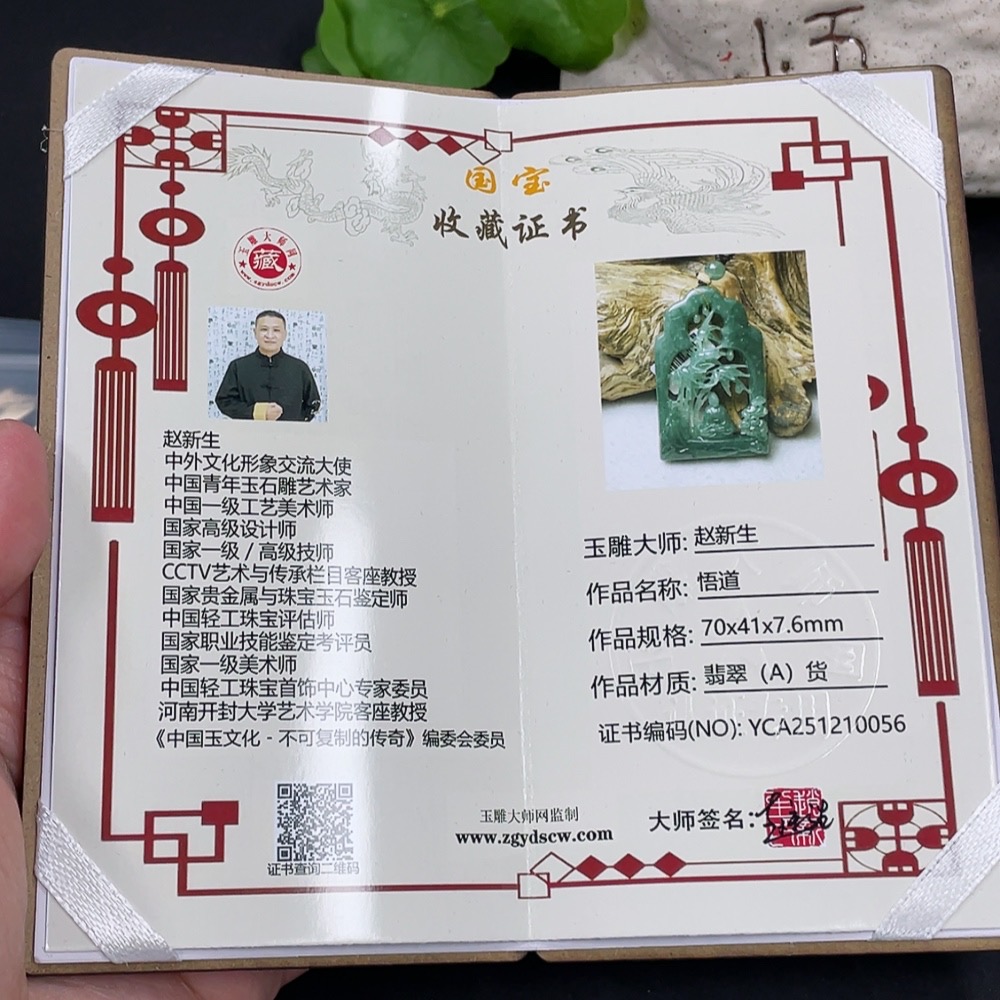 国宝
收藏证书
玉雕大师网
藏
www.zgydscw.com
赵新生
中外文化形象交流大使
中国青年玉石雕艺术家
中国一级工艺美术师
国家高级设计师
国家一级 / 高级技师
CCTV艺术与传承栏目客座教授
国家贵金属与珠宝玉石鉴定师
中国轻工珠宝评估师
国家职业技能鉴定考评员
国家一级美术师
中国轻工珠宝首饰中心专家委员
河南开封大学艺术学院客座教授
《中国玉文化 - 不可复制的传奇》编委会委员
证书查询二维码
玉雕大师网监制
www.zgydscw.com
玉雕大师: 赵新生
作品名称: 悟道
作品规格: 70x41x7.6mm
作品材质: 翡翠（A）货
证书编码(NO): YCA251210056
大师签名: